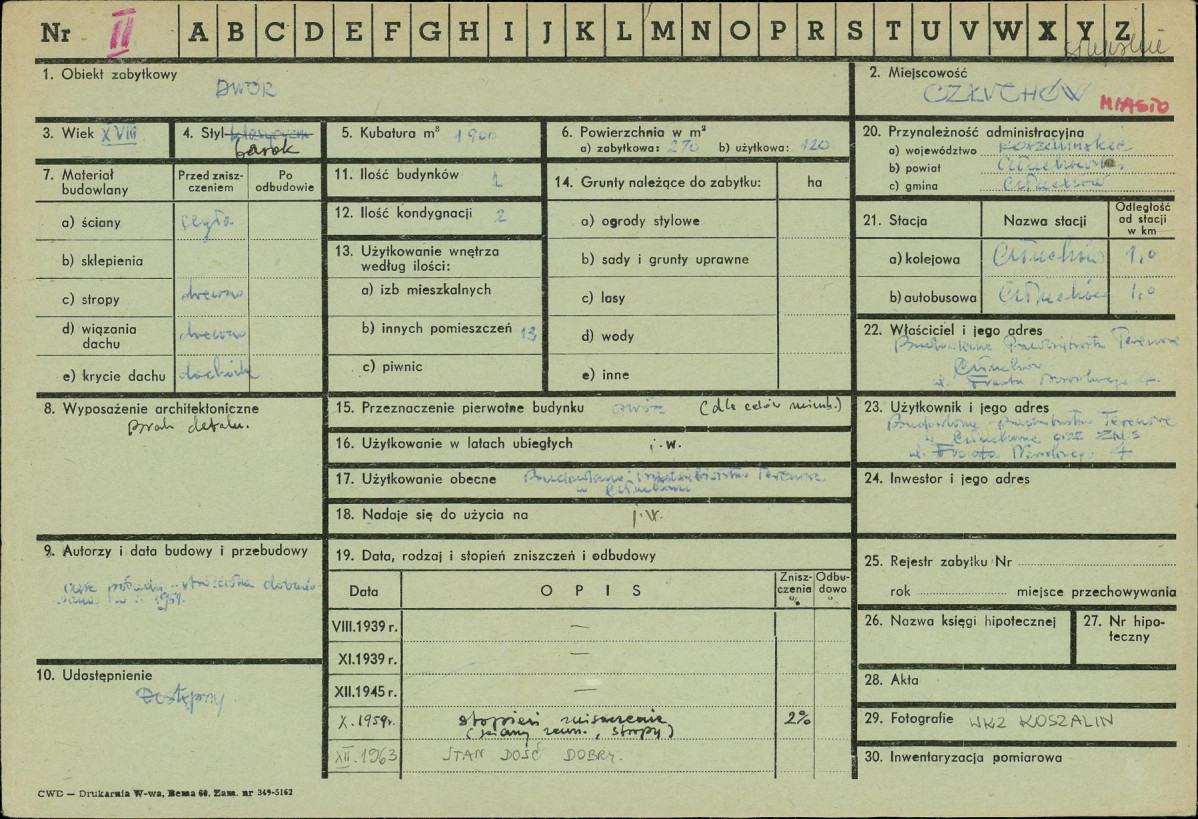 Nr II A B C D E F G H I J K L M N O P R S T U V W X Y Z
1. Obiekt zabytkowy
DWÓR
2. Miejscowość
CZŁUCHÓW MIASTO
3. Wiek XVIII
4. Styl klasycyzm
barok
5. Kubatura m³ 1900
6. Powierzchnia w m²
a) zabytkowa: 270 b) użytkowa: 120
20. Przynależność administracyjna
a) województwo Koszalińskie
b) powiat Człuchowski
c) gmina Człuchów
7. Materiał budowlany
Przed znisz-
czeniem
Po
odbudowie
a) ściany cegła
b) sklepienia
c) stropy drewno
d) wiązania
dachu drewno
e) krycie dachu dachówka
11. Ilość budynków 1
12. Ilość kondygnacji 2
13. Użytkowanie wnętrza
według ilości:
a) izb mieszkalnych
b) innych pomieszczeń 13
c) piwnic
14. Grunty należące do zabytku: ha
a) ogrody stylowe
b) sady i grunty uprawne
c) lasy
d) wody
e) inne
21. Stacja Nazwa stacji
Odległość
od stacji
w km
a) kolejowa Człuchów 1,0
b) autobusowa Człuchów 1,0
22. Właściciel i jego adres
Budowlane Przedsiębiorstwo Terenowe
Człuchów
ul. Frontu Narodowego 4.
8. Wyposażenie architektoniczne
Brak detalu.
15. Przeznaczenie pierwotne budynku dwór (dla celów mieszk.)
16. Użytkowanie w latach ubiegłych j.w.
17. Użytkowanie obecne Budowlane Przedsiębiorstwo Terenowe
w Człuchowie
18. Nadaje się do użycia na j.w.
23. Użytkownik i jego adres
Budowlane Przedsiębiorstwo Terenowe
w Człuchowie oraz
ul. Frontu Narodowego 4
24. Inwestor i jego adres
9. Autorzy i data budowy i przebudowy
część
1959.
19. Data, rodzaj i stopień zniszczeń i odbudowy
Data OPIS
Znisz-
czenia
%
Odbu-
dowa
%
VIII.1939 r. —
XI.1939 r. —
XII.1945 r. —
X.1959r. stopień zniszczenia 2%
(ściany zewn., stropy)
XII.1963 STAN DOŚĆ DOBRY.
25. Rejestr zabytku Nr
rok miejsce przechowywania
26. Nazwa księgi hipotecznej
27. Nr hipo-
teczny
10. Udostępnienie
Dostępny
28. Akta
29. Fotografie WKZ KOSZALIN
30. Inwentaryzacja pomiarowa
CWD — Drukarnia W-wa, Bema 60. Zam. nr 349-5162